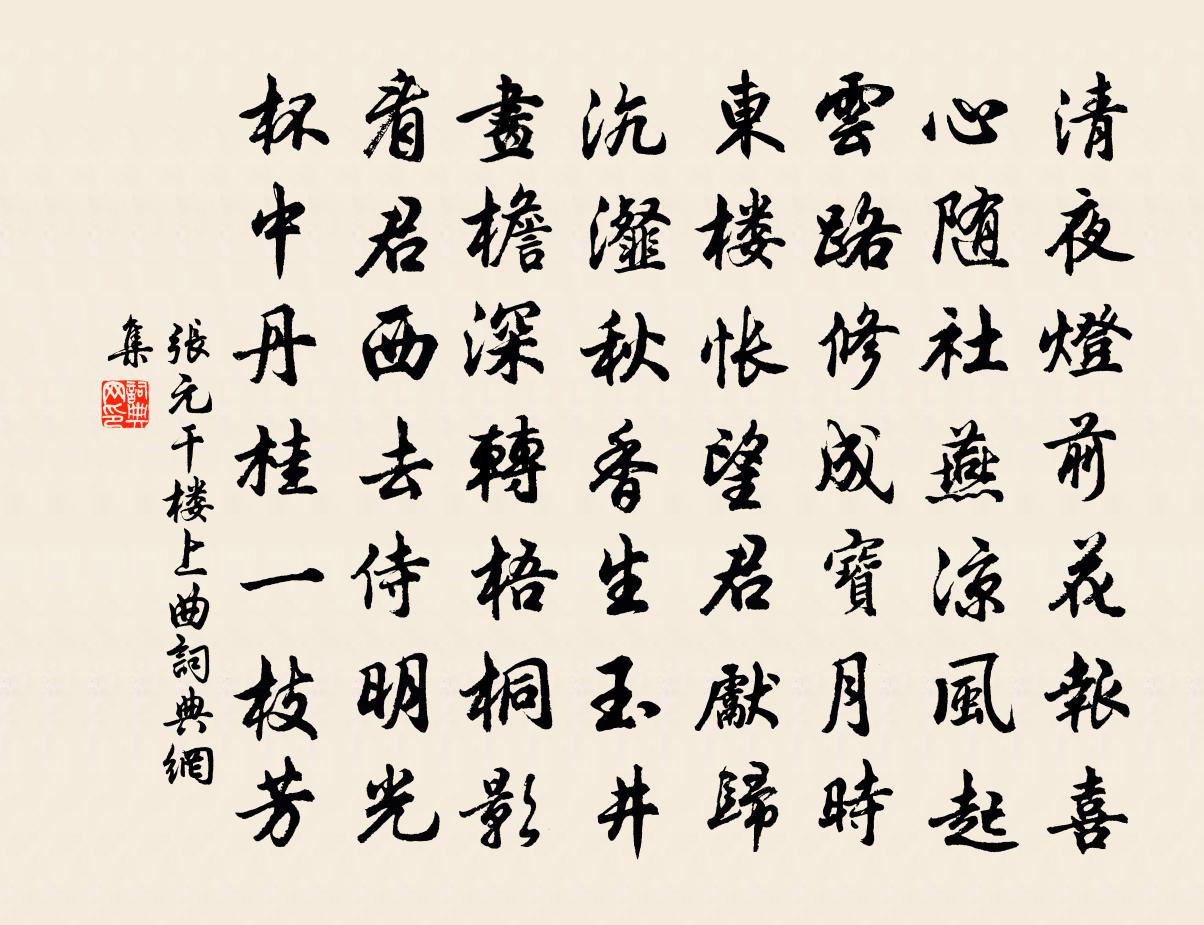 清夜燈前花報喜
心随社燕涼風起
雲路修成寶月時
東楼悵望君獻歸
沆瀣秋香生玉井
畫檐深轉梧桐影
看君西去侍明光
杯中丹桂一枝芳
張元干楼上曲詞典網
集
詞典网印